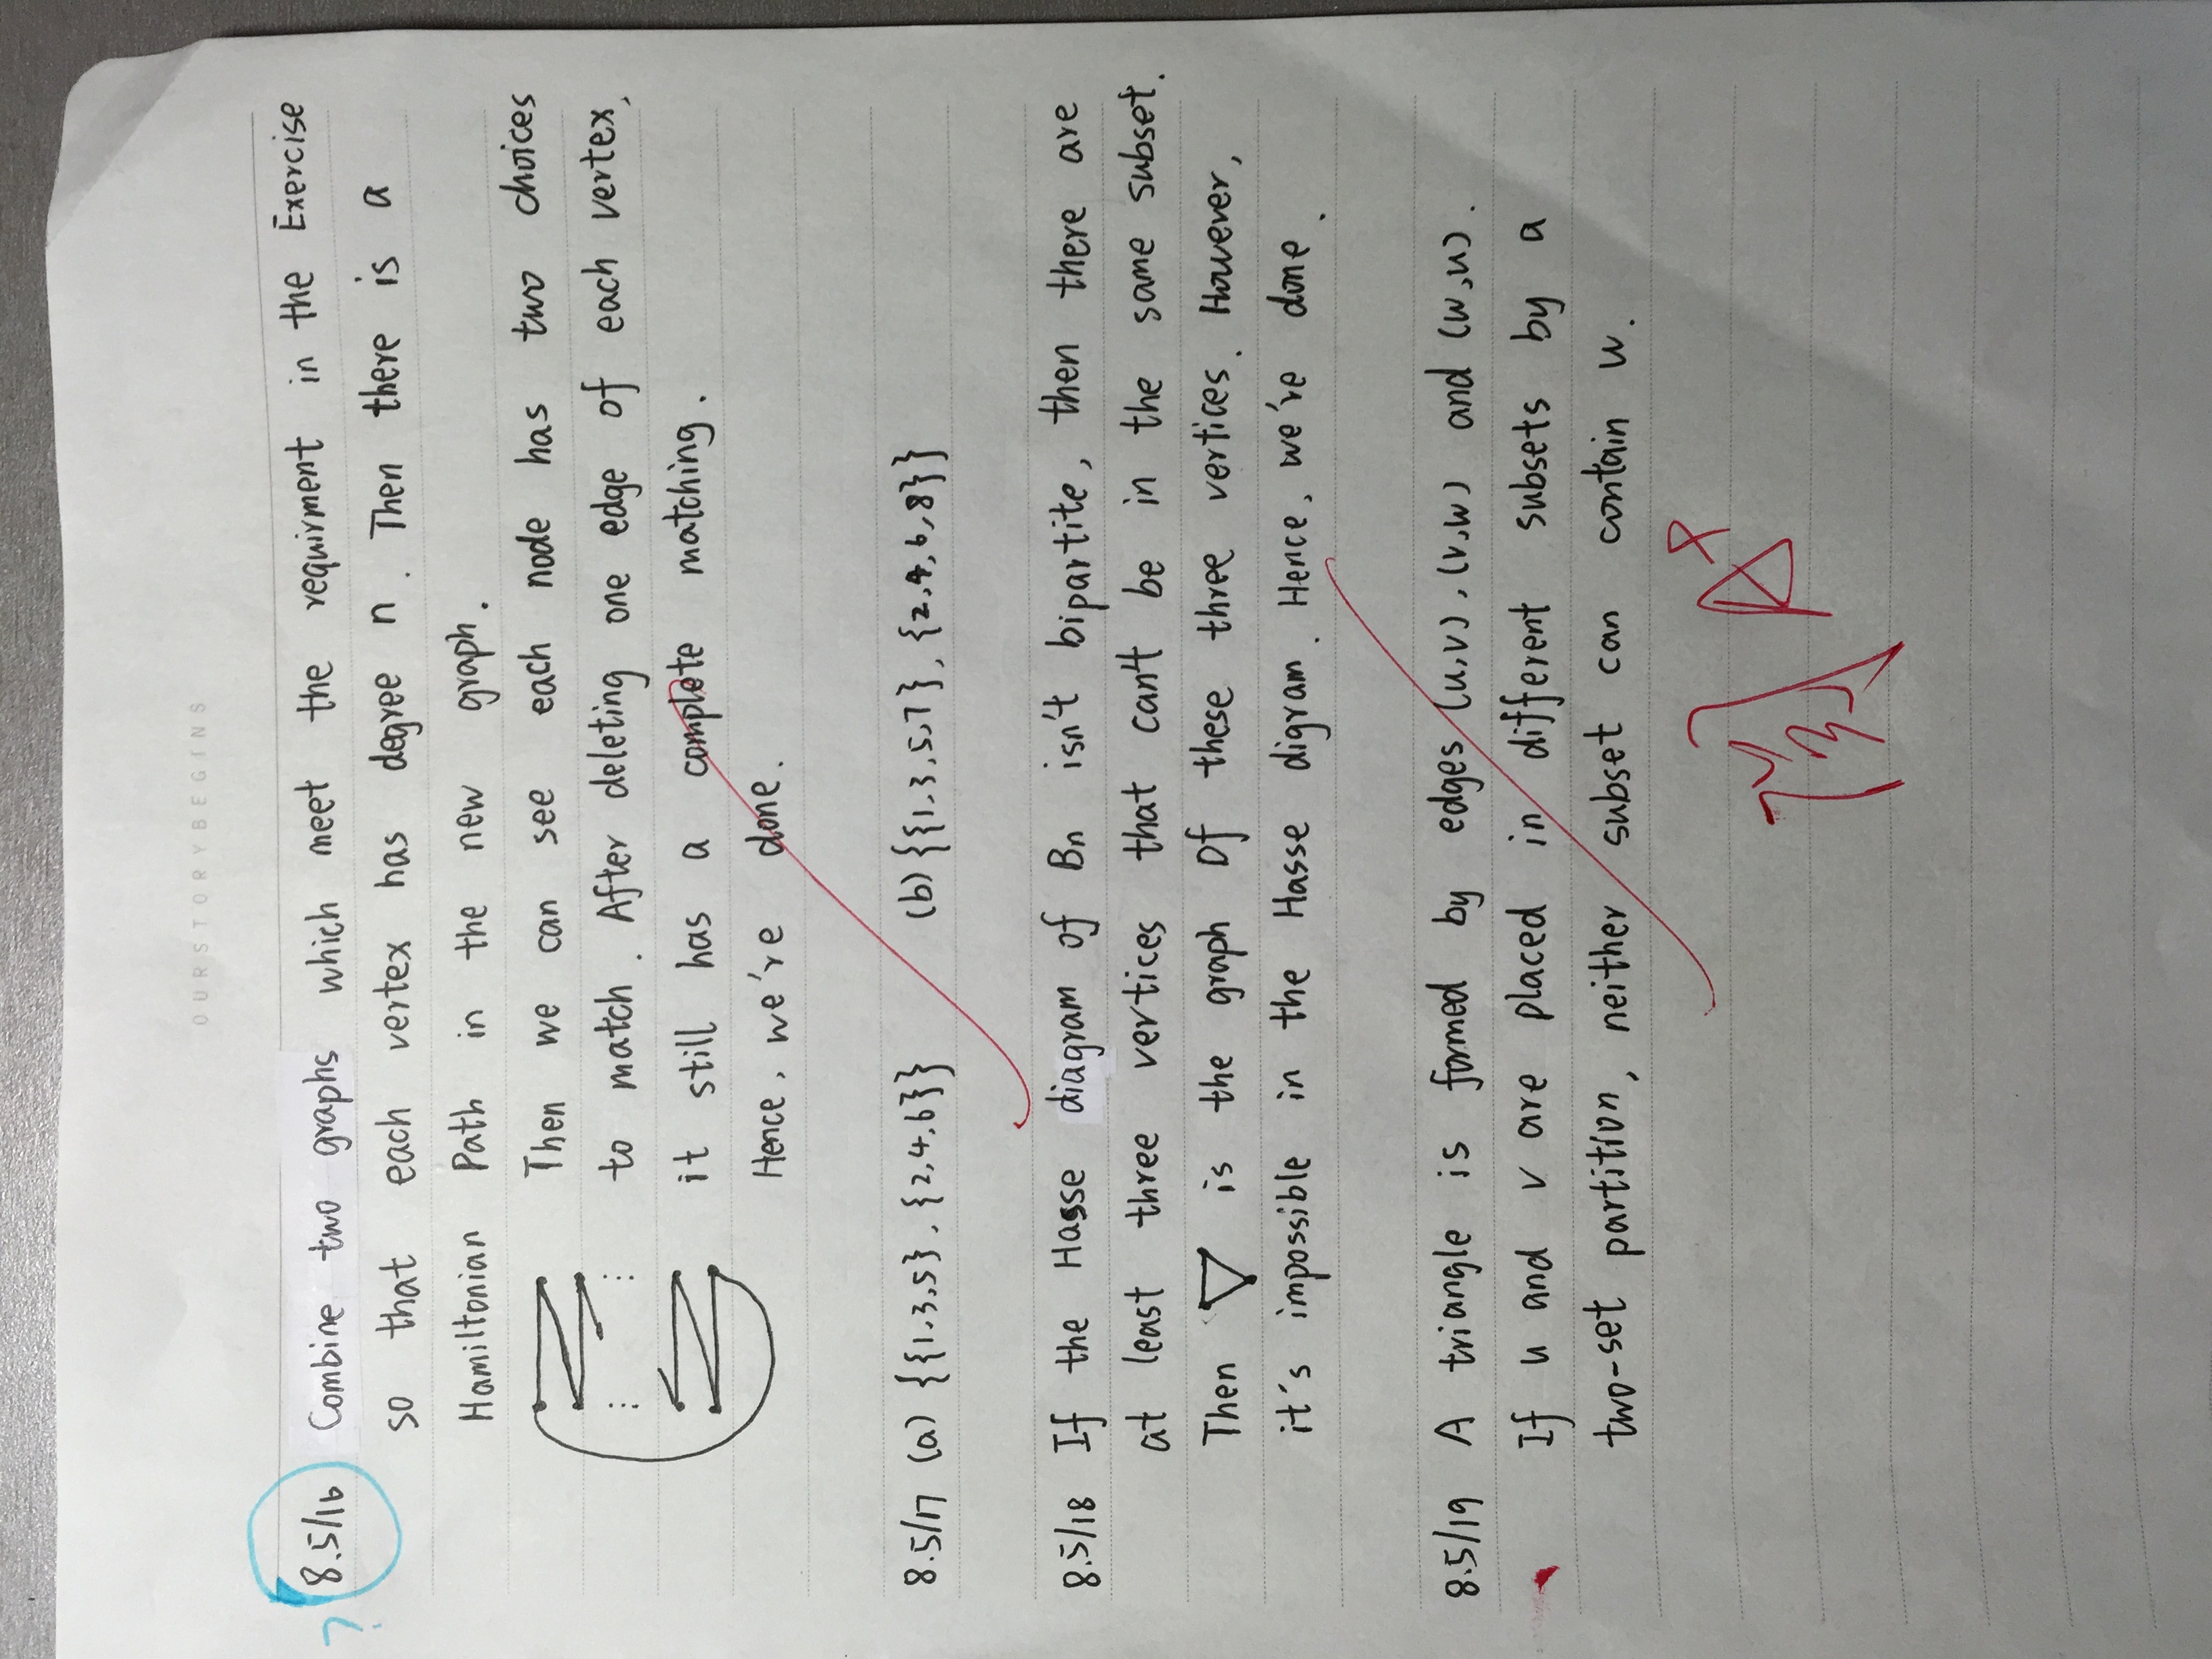 OURSTORYBEGINS
8.5/16 Combine two graphs which meet the requirment in the Exercise
?
so that each vertex has degree n. Then there is a
Hamiltonian Path in the new graph.
Then we can see each node has two choices
to match. After deleting one edge of each vertex,
it still has a complete matching.
Hence, we're done.
8.5/17 (a) {{1,3,5}, {2,4,6}} (b) {{1,3,5,7}, {2,4,6,8}}
8.5/18 If the Hasse diagram of Bn isn't bipartite, then there are
at least three vertices that can't be in the same subset.
Then is the graph of these three vertices. However,
it's impossible in the Hasse digram. Hence, we're done.
8.5/19 A triangle is formed by edges (u,v), (v,w) and (w,u).
If u and v are placed in different subsets by a
two-set partition, neither subset can contain w.
阅 A+